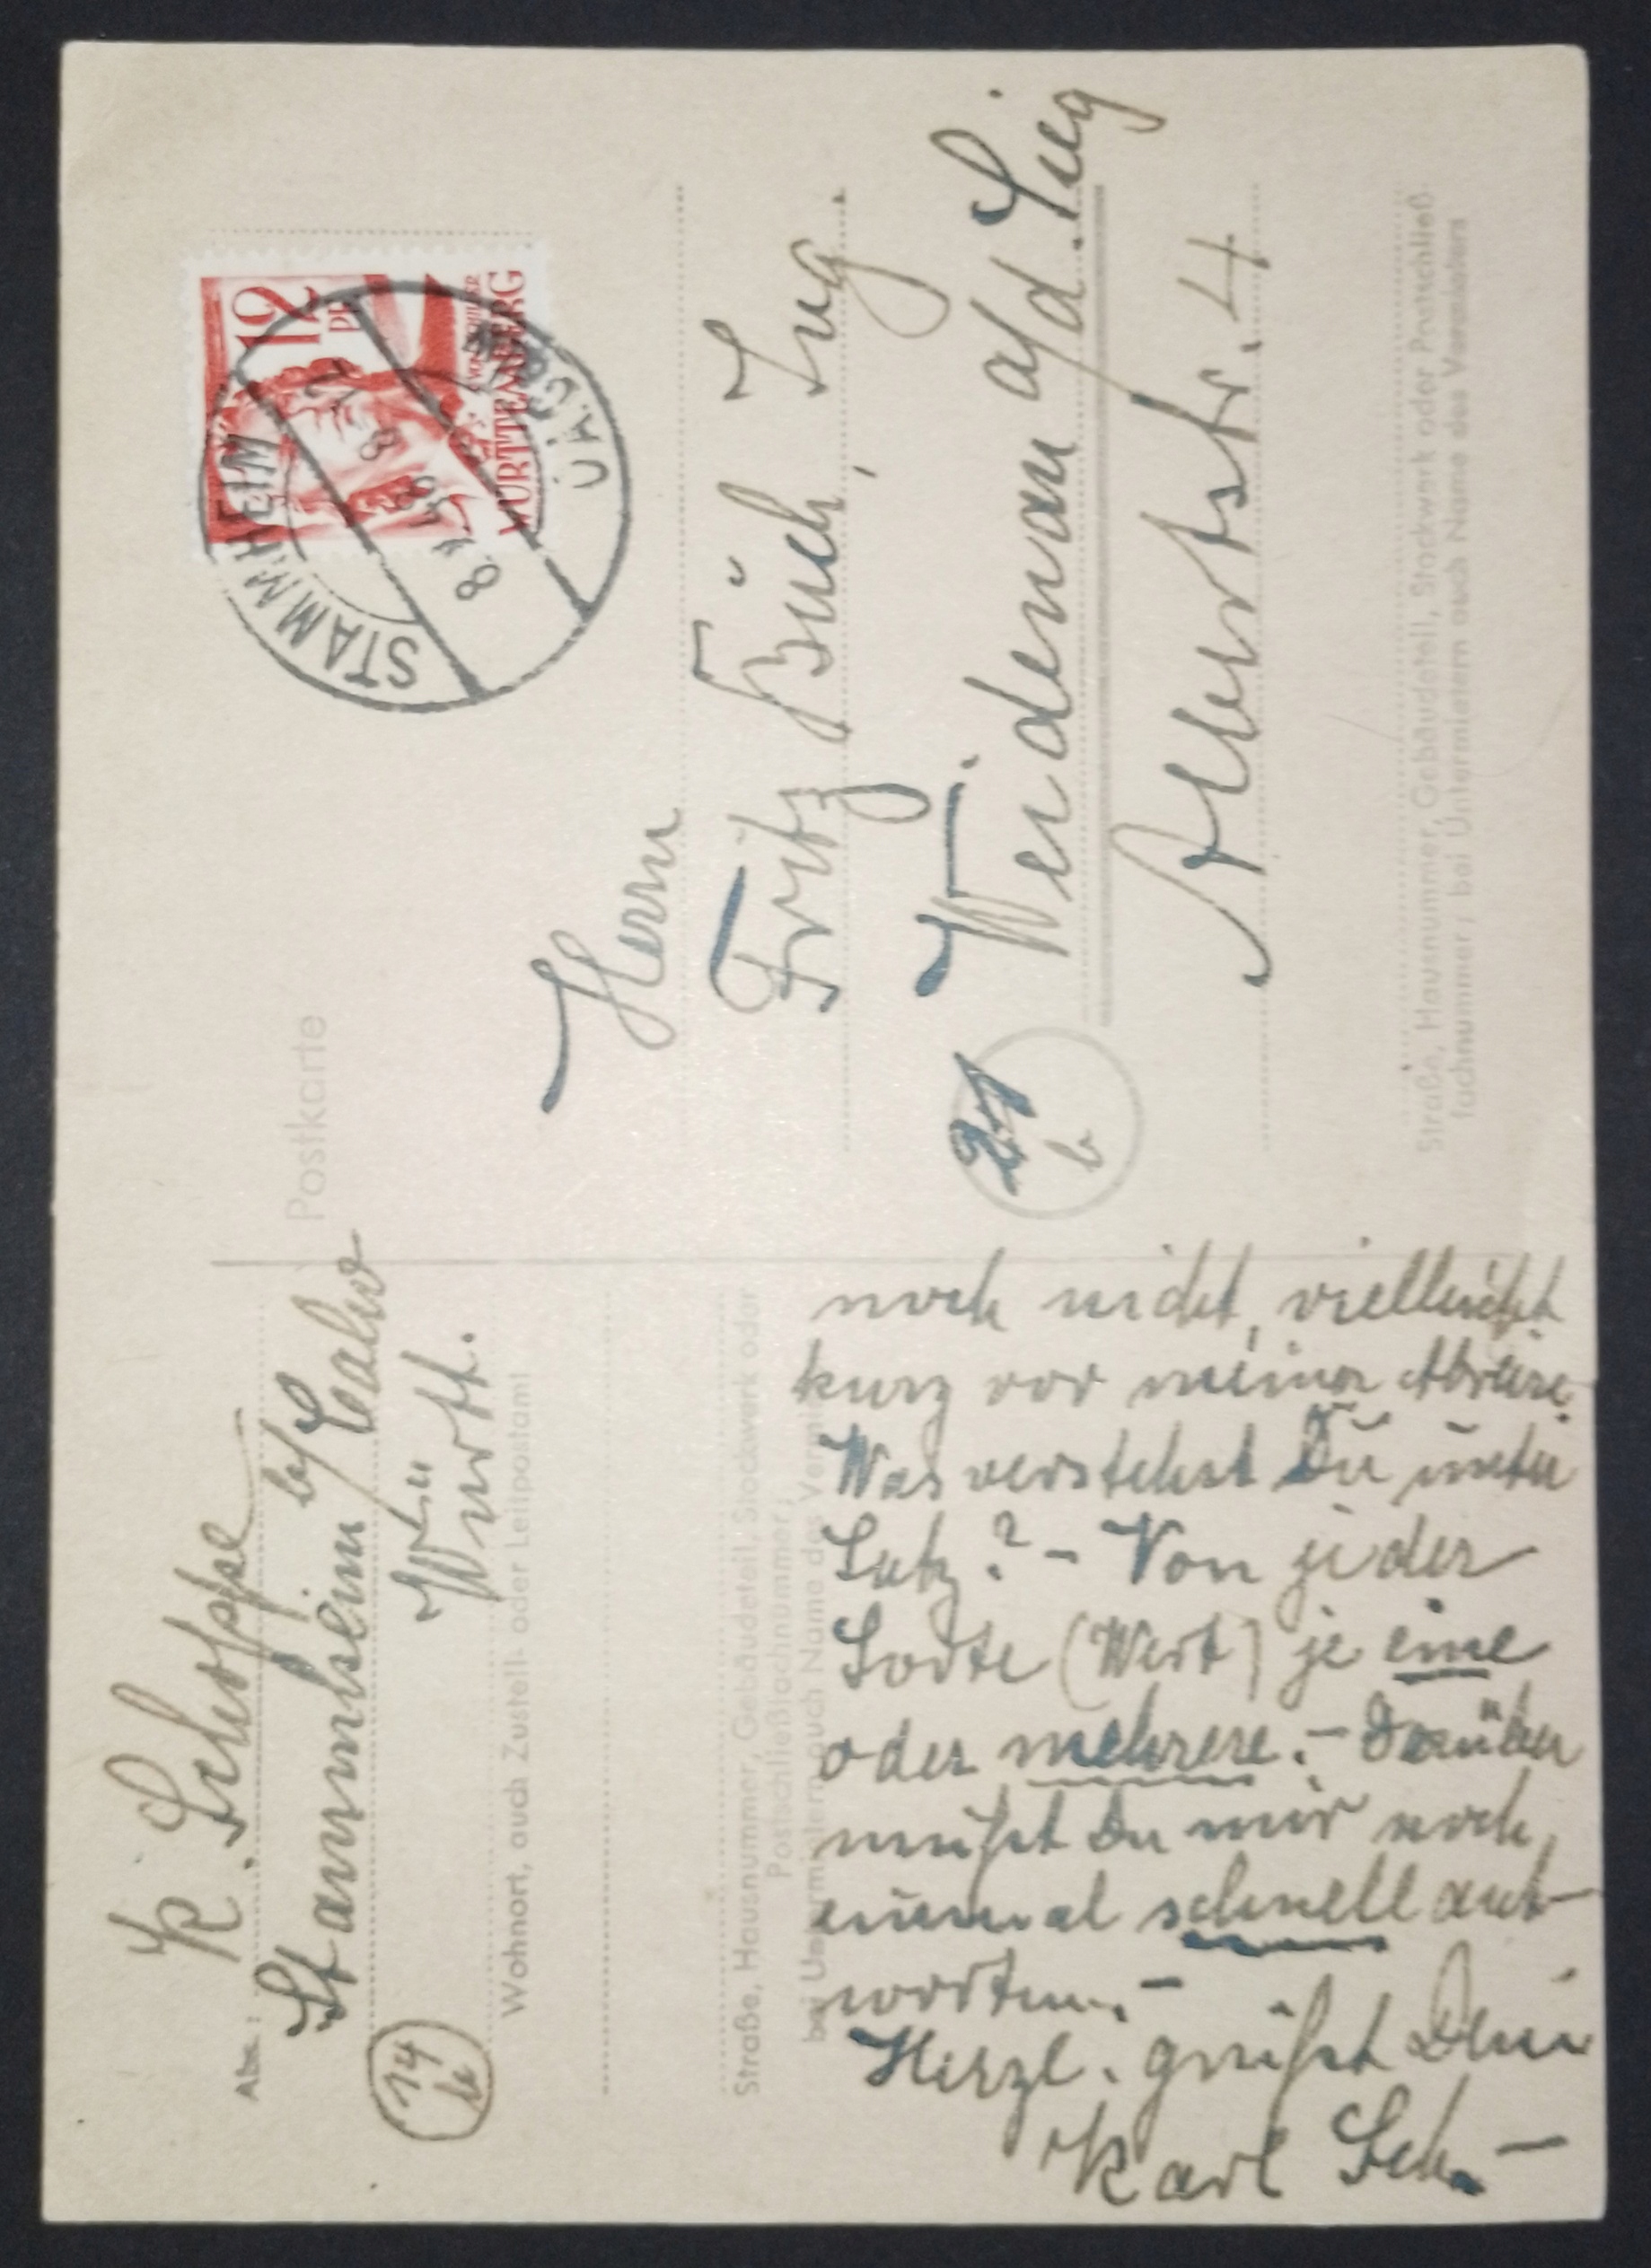 Postkarte
Abs.:
K. Schoppe
Stammheim b/Calw
14
b
Württ.
Wohnort, auch Zustell- oder Leitpostamt
Straße, Hausnummer, Gebäudeteil, Stockwerk oder
Postschließfachnummer;
bei Untermietern auch Name des Vermieters
noch nicht, vielleicht
kurz vor meiner Abreise.
Was verstehst Du unter
Satz? - Von jeder
Sorte (Wert) je eine
oder mehrere. - Darüber
mußt Du mir noch
einmal schnell ant-
worten. -
Herzl. grüßt Dein
Karl Sch. -
12
PF
WÜRTTEMBERG
STAMMHEIM
8.4.48
Herrn
Fritz Büch, Ing.
Weidenau a/d. Sieg
21
b
Straße, Hausnummer, Gebäudeteil, Stockwerk oder Postschließ-
fachnummer; bei Untermietern auch Name des Vermieters